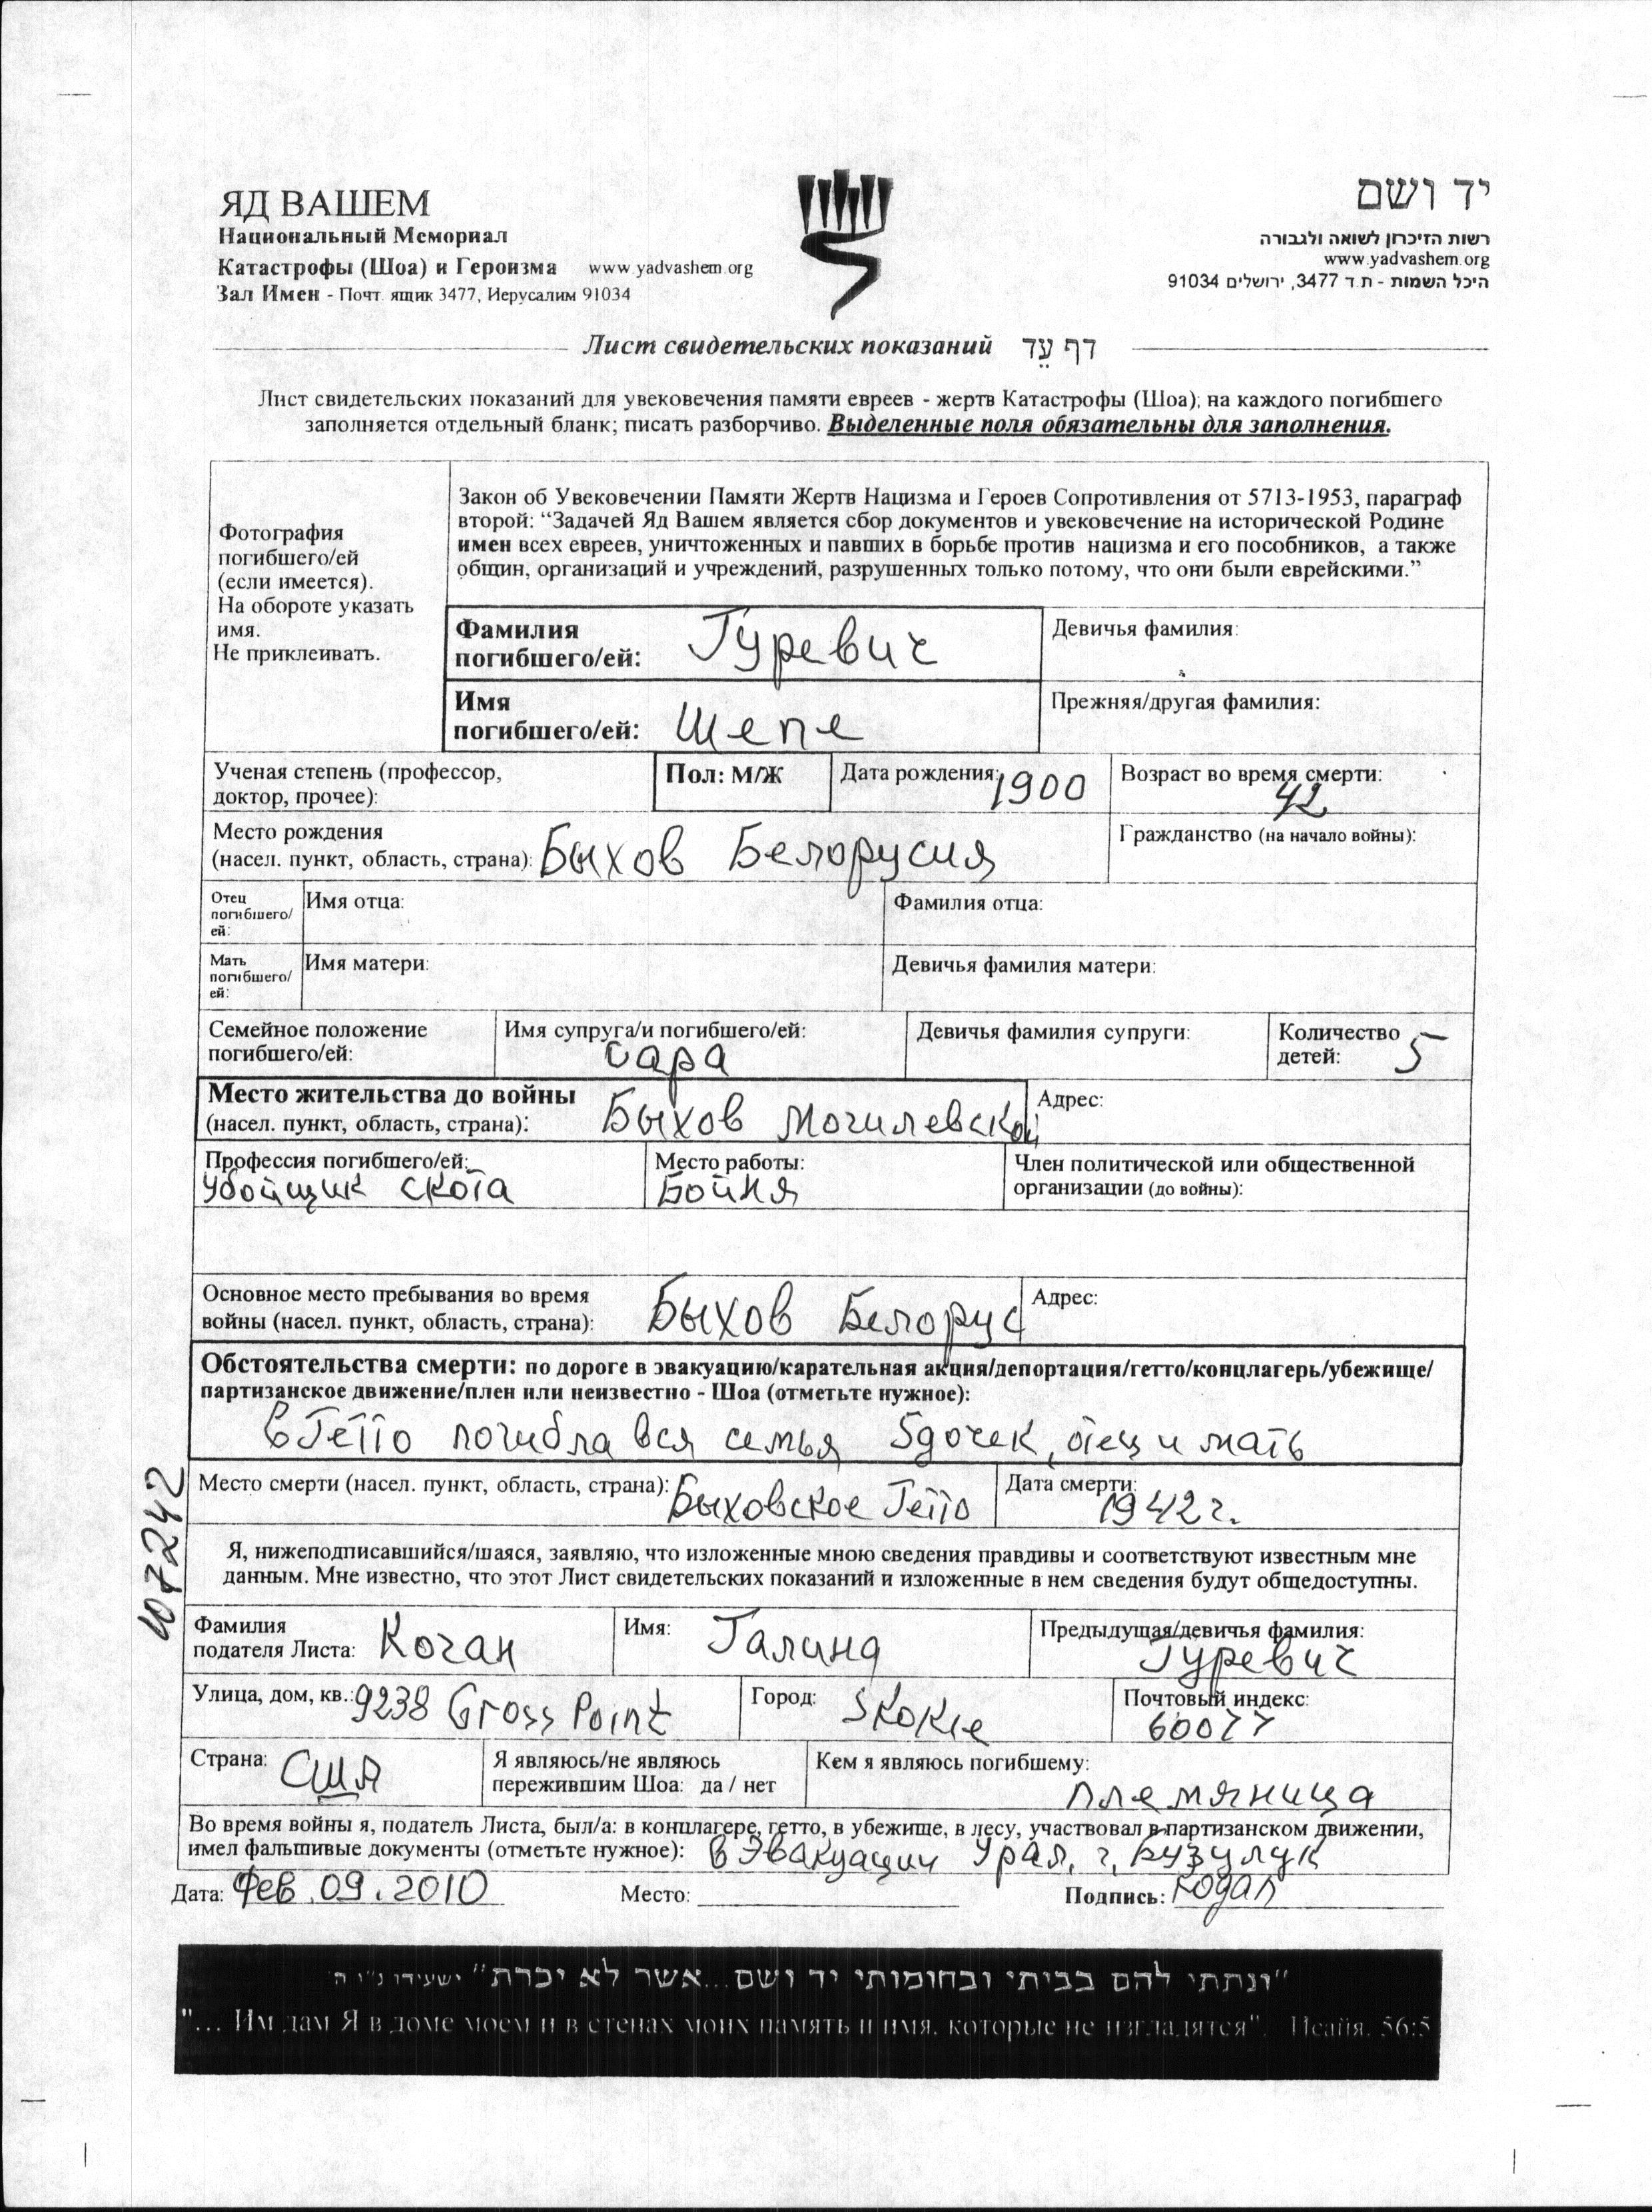 ЯД ВАШЕМ
Национальный Мемориал
Катастрофы (Шоа) и Героизма www.yadvashem.org
Зал Имен - Почт. ящик 3477, Иерусалим 91034
יד ושם
רשות הזיכרון לשואה ולגבורה
www.yadvashem.org
היכל השמות - ת.ד 3477, ירושלים 91034
Лист свидетельских показаний דף עֵד
Лист свидетельских показаний для увековечения памяти евреев - жертв Катастрофы (Шоа); на каждого погибшего
заполняется отдельный бланк; писать разборчиво. Выделенные поля обязательны для заполнения.
Фотография
погибшего/ей
(если имеется).
На обороте указать
имя.
Не приклеивать.
Закон об Увековечении Памяти Жертв Нацизма и Героев Сопротивления от 5713-1953, параграф
второй: “Задачей Яд Вашем является сбор документов и увековечение на исторической Родине
имен всех евреев, уничтоженных и павших в борьбе против нацизма и его пособников, а также
общин, организаций и учреждений, разрушенных только потому, что они были еврейскими.”
Фамилия
погибшего/ей: Гуревич
Девичья фамилия:
Имя
погибшего/ей: Шепе
Прежняя/другая фамилия:
Ученая степень (профессор,
доктор, прочее):
Пол: М/Ж
Дата рождения: 1900
Возраст во время смерти:
42
Место рождения
(насел. пункт, область, страна): Быхов Белорусия
Гражданство (на начало войны):
Отец
погибшего/
ей:
Имя отца:
Фамилия отца:
Мать
погибшего/
ей:
Имя матери:
Девичья фамилия матери:
Семейное положение
погибшего/ей:
Имя супруга/и погибшего/ей:
Сара
Девичья фамилия супруги:
Количество
детей: 5
Место жительства до войны
(насел. пункт, область, страна): Быхов Могилевской
Адрес:
Профессия погибшего/ей:
Убойщик скота
Место работы:
Бойня
Член политической или общественной
организации (до войны):
Основное место пребывания во время
войны (насел. пункт, область, страна): Быхов Белорус
Адрес:
Обстоятельства смерти: по дороге в эвакуацию/карательная акция/депортация/гетто/концлагерь/убежище/
партизанское движение/плен или неизвестно - Шоа (отметьте нужное):
в Гетто погибла вся семья 5 дочек, отец и мать
Место смерти (насел. пункт, область, страна): Быховское Гетто
Дата смерти:
1942 г.
107242
Я, нижеподписавшийся/шаяся, заявляю, что изложенные мною сведения правдивы и соответствуют известным мне
данным. Мне известно, что этот Лист свидетельских показаний и изложенные в нем сведения будут общедоступны.
Фамилия
подателя Листа: Коган
Имя: Галина
Предыдущая/девичья фамилия:
Гуревич
Улица, дом, кв.: 9238 Gross Point
Город: Skokie
Почтовый индекс:
60077
Страна: США
Я являюсь/не являюсь
пережившим Шоа: да / нет
Кем я являюсь погибшему:
племяница
Во время войны я, податель Листа, был/а: в концлагере, гетто, в убежище, в лесу, участвовал в партизанском движении,
имел фальшивые документы (отметьте нужное): в Эвакуации Урал, г. Бузулук
Дата: Фев. 09. 2010 Место: Подпись:
"ונתתי להם בביתי ובחומותי יד ושם...אשר לא יכרת" ישעיהו נ"ו ה'
"... Им дам Я в доме моем и в стенах моих память и имя, которые не изгладятся". Исайя, 56:5